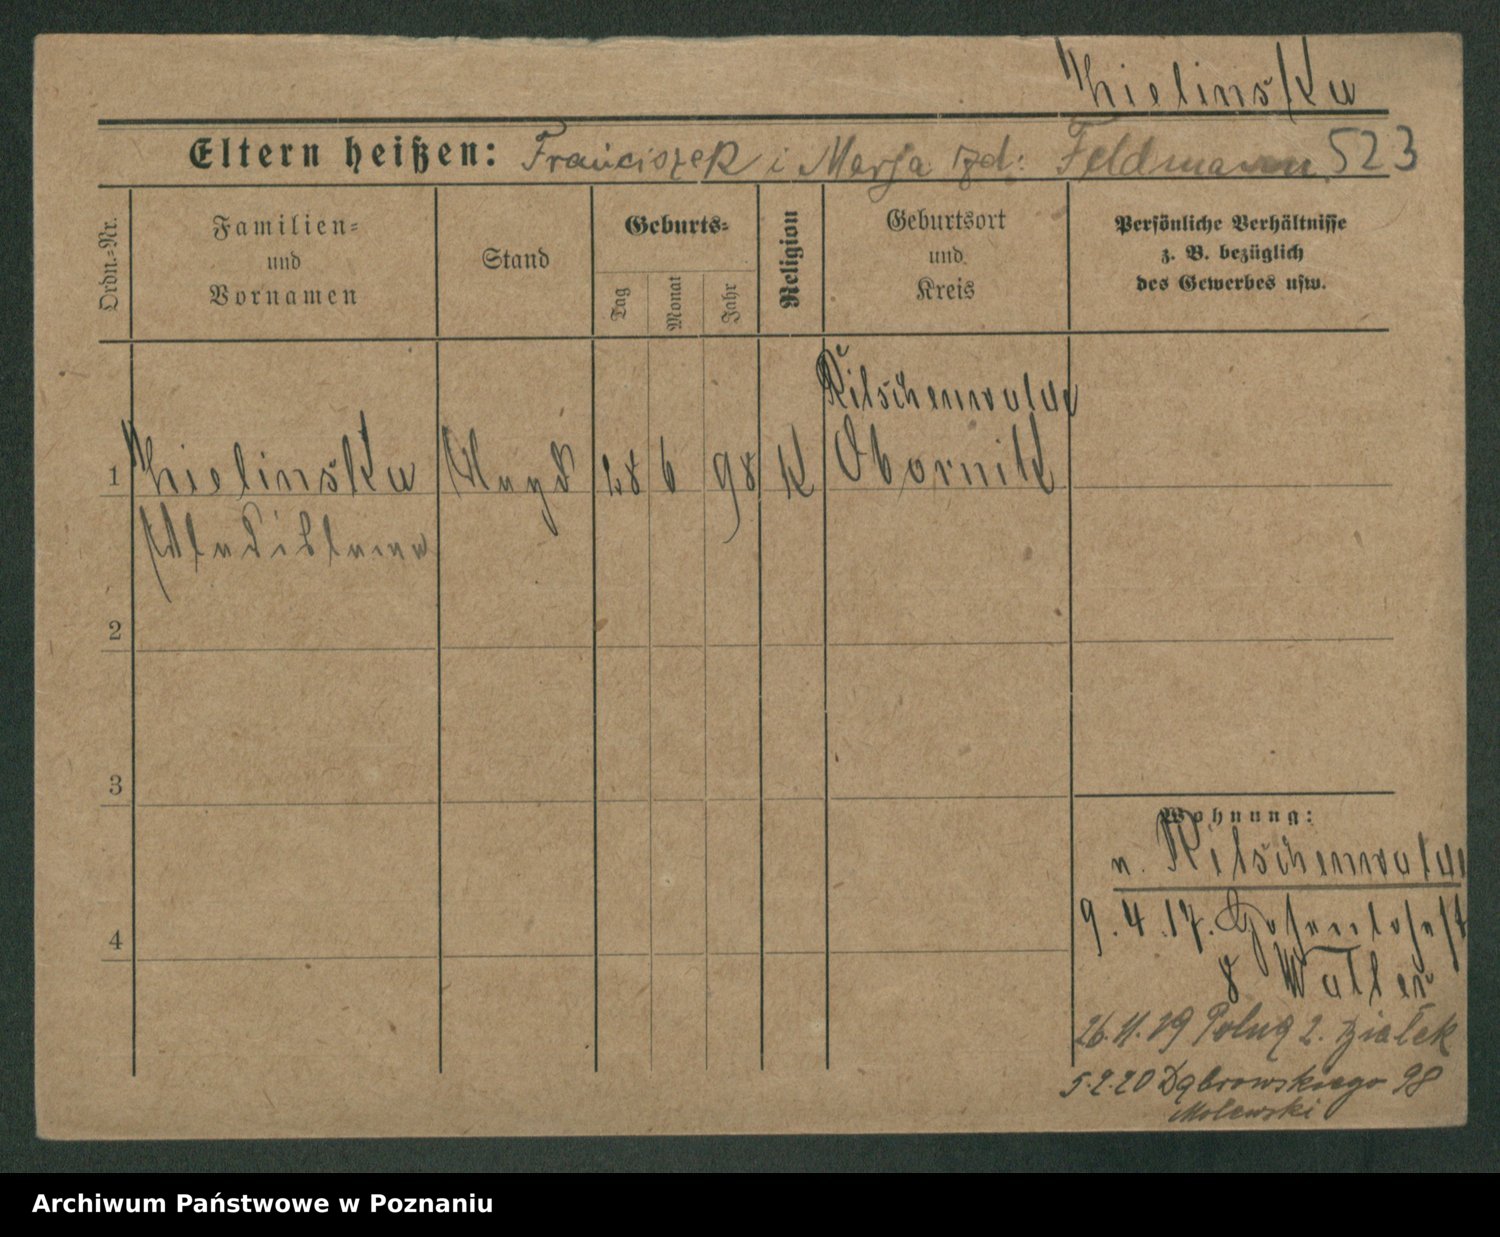 Zielinska
Eltern heißen: Franciszek i Marja zd: Feldmann 523
Ordn.-Nr.
Familien-
und
Vornamen
Stand
Geburts-
Tag
Monat
Jahr
Religion
Geburtsort
und
Kreis
Persönliche Verhältnisse
z. B. bezüglich
des Gewerbes usw.
Ritschenwalde
1 Zielinska Magd 28 6 98 K Obornik
Wladislawa
2
3
4
Wohnung:
n. Ritschenwalde
9.4.17.
8
26.11.19 2.
5.2.20 Dąbrowskiego 98
Molewski
Archiwum Państwowe w Poznaniu